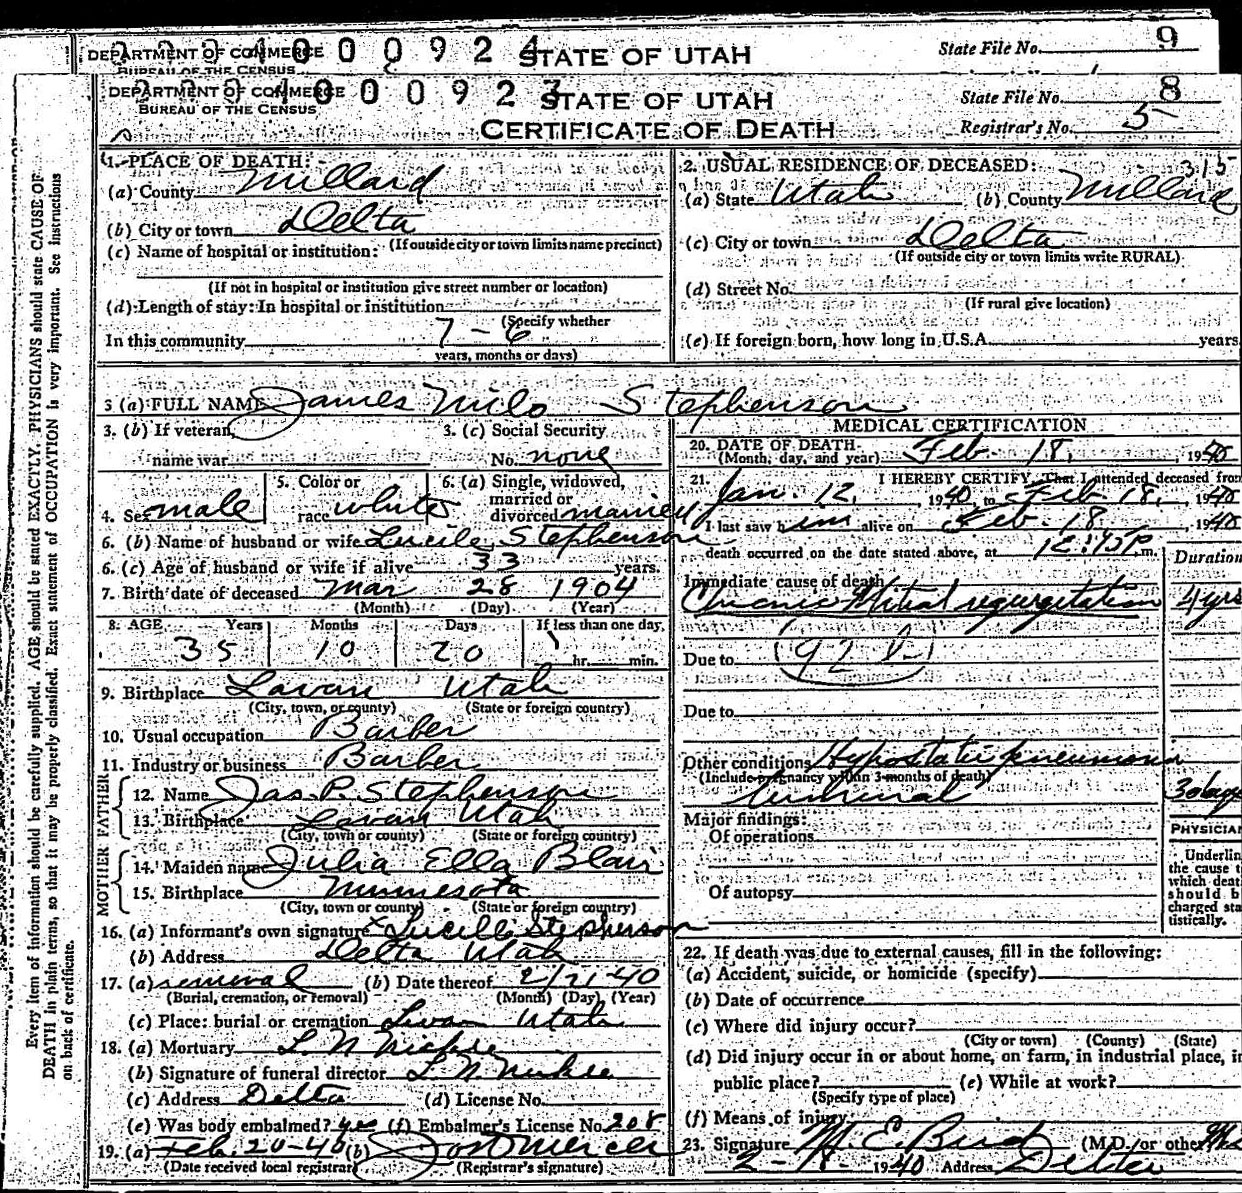 DEPARTMENT OF COMMERCE
STATE OF UTAH
State File No. 9
BUREAU OF THE CENSUS
DEPARTMENT OF COMMERCE
STATE OF UTAH
State File No. 8
BUREAU OF THE CENSUS
CERTIFICATE OF DEATH
Registrar's No. 5
Every item of information should be carefully supplied. AGE should be stated EXACTLY. PHYSICIANS should state CAUSE OF
DEATH in plain terms, so that it may be properly classified. Exact statement of OCCUPATION is very important. See instructions
on back of certificate.
1. PLACE OF DEATH:
(a) County Millard
(b) City or town Delta
(If outside city or town limits name precinct)
(c) Name of hospital or institution:
(If not in hospital or institution give street number or location)
(d) Length of stay: In hospital or institution
(Specify whether
In this community 7-6
years, months or days)
2. USUAL RESIDENCE OF DECEASED: 315
(a) State Utah (b) County Millard
(c) City or town Delta
(If outside city or town limits write RURAL)
(d) Street No.
(If rural give location)
(e) If foreign born, how long in U.S.A. years
3 (a) FULL NAME James Milo Stephenson
3. (b) If veteran,
name war
3. (c) Social Security
No. none
4. Sex male
5. Color or
race white
6. (a) Single, widowed,
married or
divorced married
6. (b) Name of husband or wife Lucile Stephenson
6. (c) Age of husband or wife if alive 33 years.
7. Birth date of deceased Mar 28 1904
(Month) (Day) (Year)
8. AGE Years Months Days If less than one day
35 10 20 hr. min.
9. Birthplace Levan Utah
(City, town, or county) (State or foreign country)
10. Usual occupation Barber
11. Industry or business Barber
FATHER
12. Name Jas. P. Stephenson
13. Birthplace Levan Utah
(City, town or county) (State or foreign country)
MOTHER
14. Maiden name Julia Ella Blair
15. Birthplace Minnesota
(City, town or county) (State or foreign country)
16. (a) Informant's own signature x Lucille Stephenson
(b) Address Delta Utah
17. (a) removal (b) Date thereof 2/21-40
(Burial, cremation, or removal) (Month) (Day) (Year)
(c) Place: burial or cremation Levan Utah
18. (a) Mortuary L. N.
(b) Signature of funeral director L. N.
(c) Address Delta (d) License No.
(e) Was body embalmed? yes (f) Embalmer's License No. 208
19. (a) Feb. 20-40 (b) Mercer
(Date received local registrar) (Registrar's signature)
MEDICAL CERTIFICATION
20. DATE OF DEATH
(Month, day, and year) Feb. 18, 1940
21. I HEREBY CERTIFY, That I attended deceased from
Jan. 12, 1940 to Feb 18, 1940
I last saw him alive on Feb. 18, 1940
death occurred on the date stated above, at 12:45 P.m.
Duration
Immediate cause of death
Chronic Mitral regurgitation 4 yrs
Due to (92 b)
Due to
Other conditions Hypostatic pneumonia
(Include pregnancy within 3 months of death)
terminal 3 days
Major findings:
Of operations
Of autopsy
PHYSICIAN
Underlin
the cause t
which deat
should b
charged sta
tistically.
22. If death was due to external causes, fill in the following:
(a) Accident, suicide, or homicide (specify)
(b) Date of occurrence
(c) Where did injury occur?
(City or town) (County) (State)
(d) Did injury occur in or about home, on farm, in industrial place, in
public place? (e) While at work?
(Specify type of place)
(f) Means of injury
23. Signature M. E. Bird (M.D. or other)
2-18-1940 Address Delta